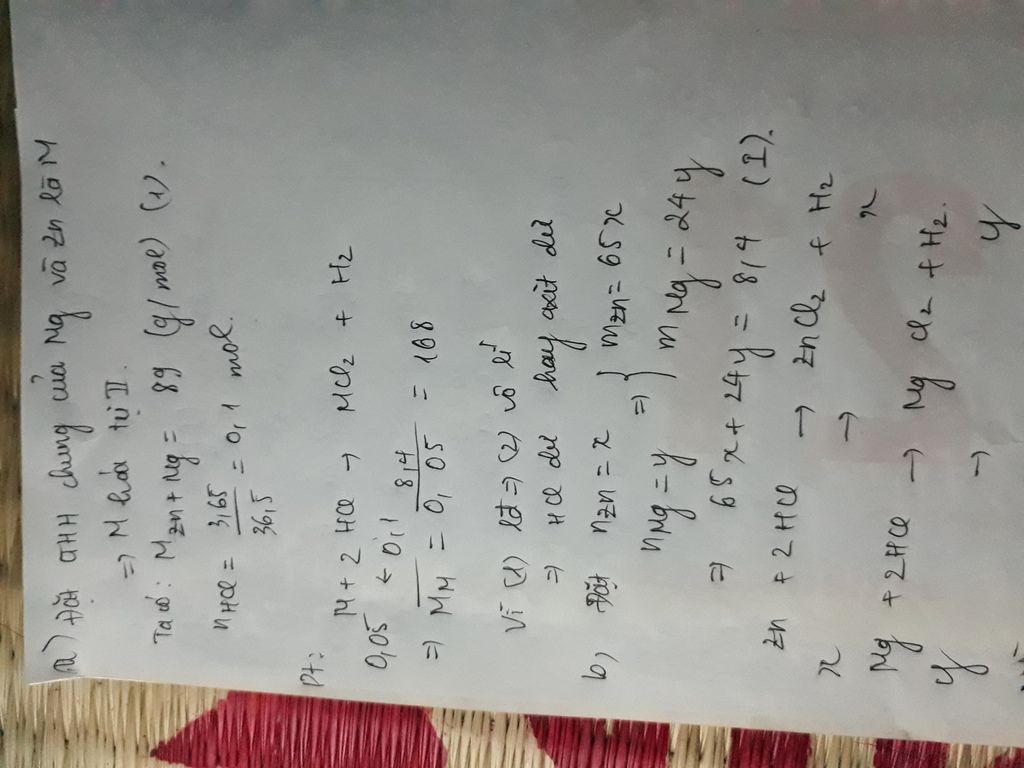 a) Đặt CTHH chung của Mg và Zn là M
=> M hoá trị II.
Ta có: M Zn + Mg = 89 (g/mol) (1).
nHCl = 3,65 / 36,5 = 0,1 mol.
Pt: M + 2HCl → MCl2 + H2
0,05 ← 0,1
=> MM = 8,4 / 0,05 = 168
Vì (1) => (2) vô lí
=> HCl dư hay axit dư
b) Đặt nZn = x => { mZn = 65x
nMg = y mMg = 24y
=> 65x + 24y = 8,4 (I).
Zn + 2HCl → ZnCl2 + H2
x → x
Mg + 2HCl → MgCl2 + H2.
y → y